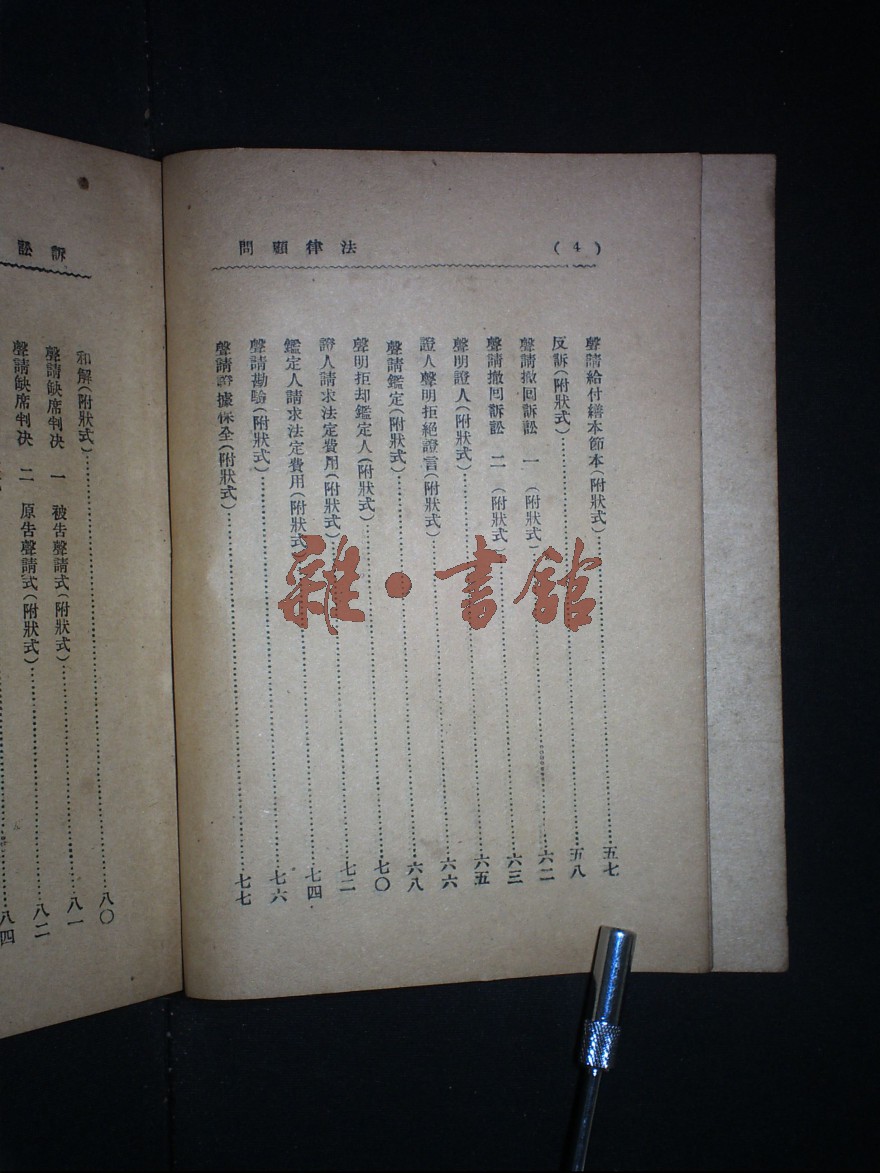 (4)
法律顧問
聲請給付繕本節本(附狀式)……五七
反訴(附狀式)……五八
聲請撤回訴訟 一 (附狀式)……六二
聲請撤回訴訟 二 (附狀式)……六三
聲明證人(附狀式)……六五
證人聲明拒絕證言(附狀式)……六六
聲請鑑定(附狀式)……六八
聲明拒却鑑定人(附狀式)……七〇
證人請求法定費用(附狀式)……七二
鑑定人請求法定費用(附狀式)……七四
聲請勘驗(附狀式)……七六
聲請證據保全(附狀式)……七七
訴訟
和解(附狀式)……八〇
聲請缺席判决 一 被告聲請式(附狀式)……八一
聲請缺席判决 二 原告聲請式(附狀式)……八二
……八四
雜·書館